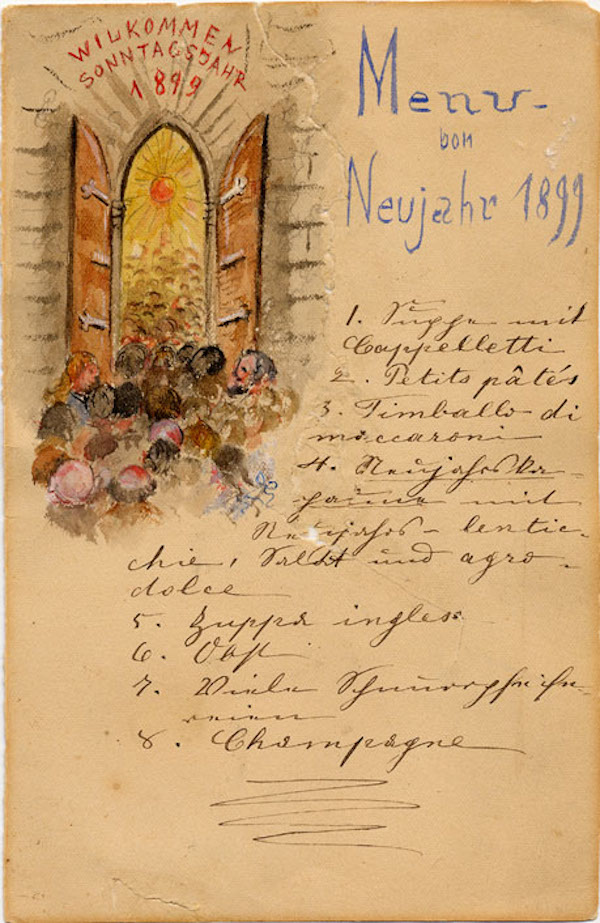 WILKOMMEN
SONNTAGSJAHR
1899
Menu-
von
Neujahr 1899
1. Suppe mit
Cappelletti
2. Petits pâtés
3. Timballo di
maccaroni
4. Neujahrska-
paune mit
Neujahrs-lentic-
chie, Salat und agro-
dolce
5. Zuppa inglese
6. Obst
7. Viele Schnurrpfeife-
reien
8. Champagne